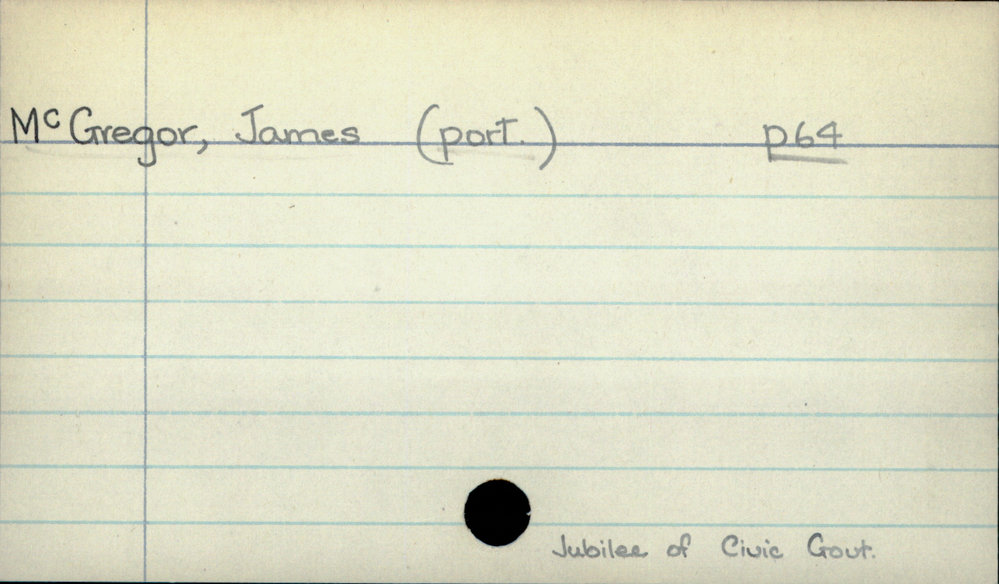 McGregor, James (port.) p64
Jubilee of Civic Govt.